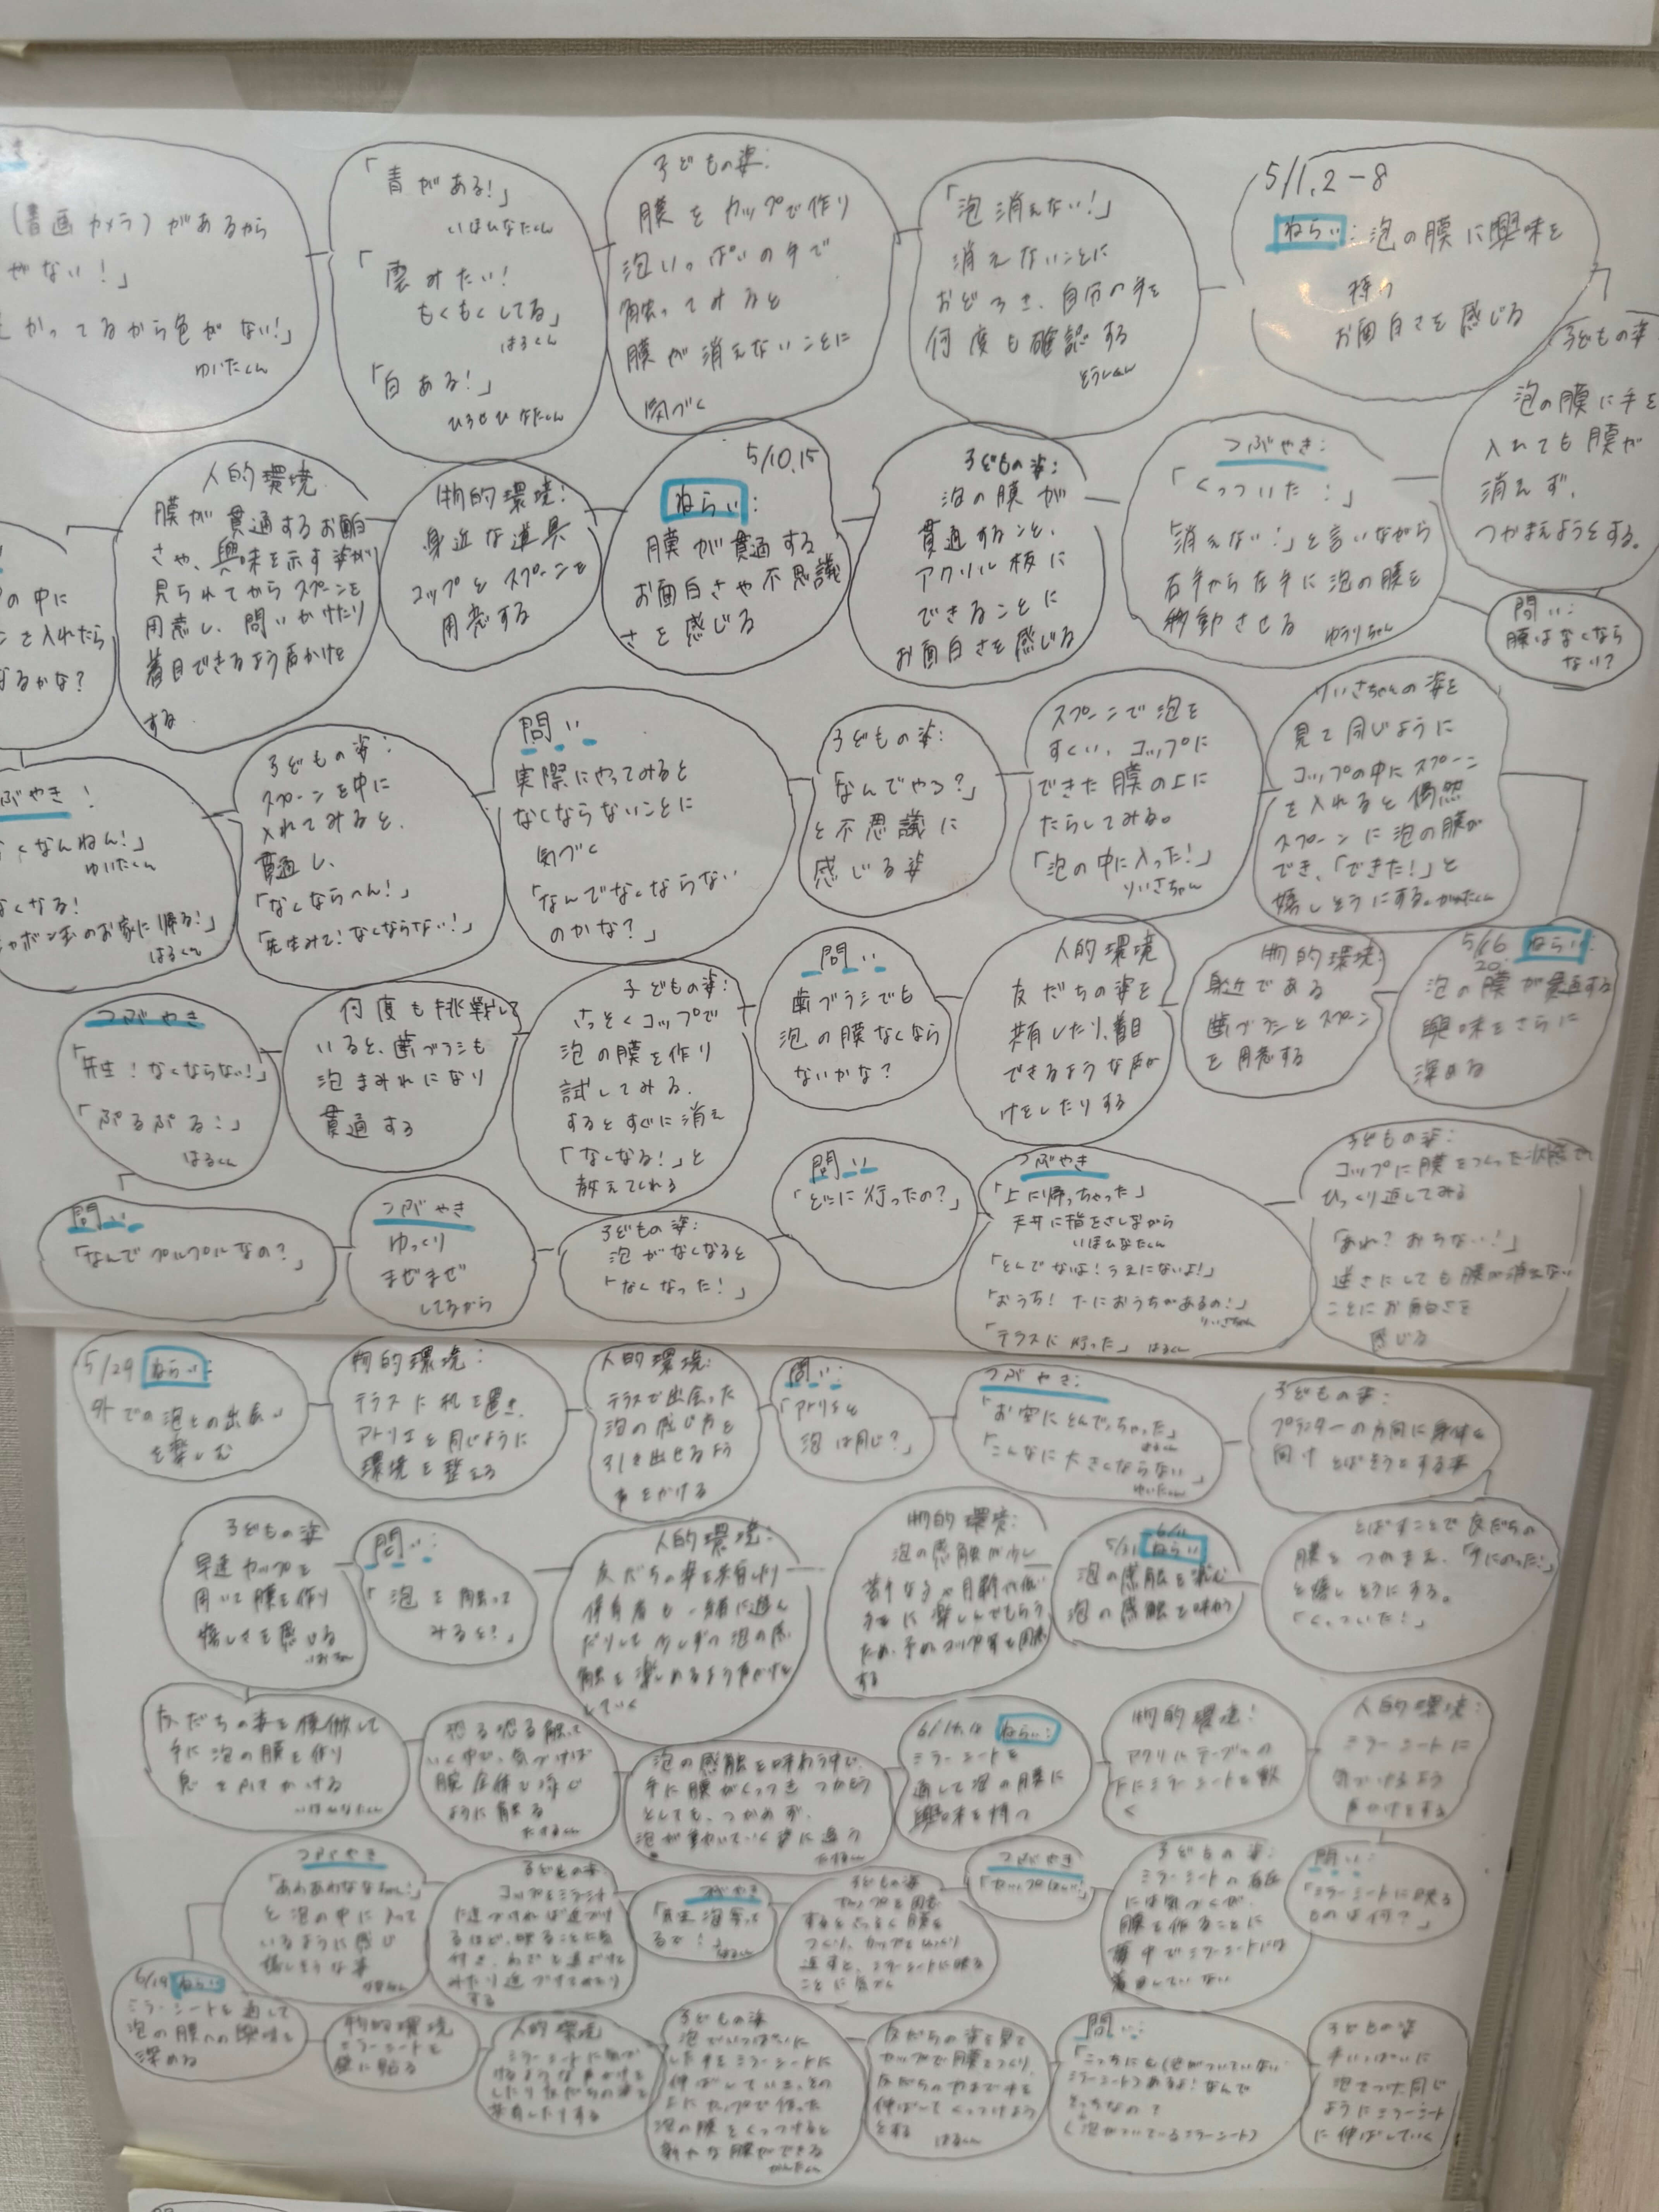 (書画カメラ)があるから
やない!」
かってるから色がない!」
ゆいたくん
「青がある!」
いほひなたくん
「雲みたい!
もくもくしてる」
はるくん
「白ある!」
ひなたくん
子どもの姿:
膜をカップで作り
泡いっぱいの手で
触ってみると
膜が消えないことに
気づく
「泡消えない!」
消えないことに
おどろき、自分の手を
何度も確認する
5/1,2-8
ねらい:泡の膜に興味を
持つ
お面白さを感じる
子どもの姿
泡の膜に手を
入れても膜が
消えず、
つかまえようとする。
問い:
膜はなくなら
ない?
つぶやき:
「くっついた!」
「消えない!」と言いながら
右手から左手に泡の膜を
移動させる
ゆうりちゃん
子どもの姿:
泡の膜が
貫通すること、
アクリル板に
できることに
お面白さを感じる
5/10,15
ねらい:
膜が貫通する
お面白さや不思議
さを感じる
物的環境:
身近な道具
コップとスプーンを
用意する
人的環境
膜が貫通するお面白
さや、興味を示す姿が
見られてからスプーンを
用意し、問いかけたり
着目できるよう声かけを
する
の中に
を入れたら
なるかな?
ぶやき!
くなんねん!」
ゆいたくん
なくなる!
シャボン玉のお家に帰る!」
はるくん
子どもの姿:
スプーンを中に
入れてみると、
貫通し、
「なくならへん!」
「先生みて!なくならない!」
問い
実際にやってみると
なくならないことに
気づく
「なんでなくならない
のかな?」
子どもの姿:
「なんでやろ?」
と不思議に
感じる姿
スプーンで泡を
すくい、コップに
できた膜の上に
たらしてみる。
「泡の中に入った!」
りいさちゃん
りいさちゃんの姿を
見て同じように
コップの中にスプーン
を入れると偶然
スプーンに泡の膜が
でき、「できた!」と
嬉しそうにする。
5/16 ねらい:
20
泡の膜が貫通する
興味をさらに
深める
物的環境:
身近である
歯ブラシとスプーン
を用意する
人的環境
友だちの姿を
共有したり、着目
できるような声か
けをしたりする
問い
歯ブラシでも
泡の膜なくなら
ないかな?
子どもの姿:
さっそくコップで
泡の膜を作り
試してみる.
するとすぐに消え
「なくなる!」と
教えてくれる
何度も挑戦して
いると、歯ブラシも
泡まみれになり
貫通する
つぶやき
「先生!なくならない!」
「ぷるぷる!」
はるくん
問い
「なんでプルプルなの?」
つぶやき
ゆっくり
まぜまぜ
してるから
子どもの姿:
泡がなくなると
「なくなった!」
問い
「どこに行ったの?」
つぶやき
「上に帰っちゃった」
天井に指をさしながら
いほひなたくん
「とんでないよ!うえにないよ!」
「おうち!下におうちがあるの!」
りいさちゃん
「テラスに行った」 はるくん
子どもの姿:
コップに膜をつくった状態で
ひっくり返してみる
「あれ?おちない!」
逆さにしても膜が消えない
ことにお面白さを
感じる
5/29 ねらい:
外での泡との出会い
を楽しむ
物的環境:
テラスに机を置き、
アトリエと同じように
環境を整える
人的環境:
テラスで出会った
泡の感じ方を
引き出せるよう
声をかける
問い:
「アトリエと
泡は同じ?」
つぶやき:
「お空にとんでっちゃった」
はるくん
「こんなに大きくならない」
ゆいたくん
子どもの姿:
プランターの方向に身体を
向けとばそうとする姿
とばすことで友だちの
膜をつかまえ、「手にのった!」
と嬉しそうにする。
「くっついた!」
6/11
5/31 ねらい
泡の感触を楽しむ
泡の感触を味わう
物的環境:
泡の感触が少し
する
人的環境:
友だちの姿を共有したり
保育者も一緒に遊ん
だりして少しずつ泡の感
触を楽しめるよう声かけを
していく
問い:
「泡を触って
みると?」
子どもの姿
早速カップを
用いて膜を作り
嬉しさを感じる
友だちの姿を模倣して
手に泡の膜を作り
息をふきかける
いほひなたくん
恐る恐る触って
いく中で、気づけば
腕全体を
ように触る
泡の感触を味わう中で、
手に膜がくっつき つかもう
としても、つかめず、
泡が動いていく姿に
ねらい:
ミラーシートを
通して泡の膜に
興味を持つ
物的環境:
アクリルテーブルの
下にミラーシートを敷
く
人的環境:
ミラーシートに
気づけるよう
声かけをする
問い:
「ミラーシートに映る
ものは何?」
子どもの姿:
ミラーシートの存在
には気づくが、
膜を作ることに
夢中でミラーシートには
着目していない
つぶやき
子どもの姿
つくり、カップをひっくり
返すと、ミラーシートに映る
ことに気づく
つぶやき
子どもの姿
コップをミラーシート
に近づければ近づけ
るほど、映ることに気
付き、わざと遠ざけて
みたり近づけてみたり
する
つぶやき
と泡の中に入って
いるように感じ
嬉しそうな姿
ねらい
ミラーシートを通して
泡の膜への興味を
深める
物的環境
ミラーシートを
壁に貼る
人的環境
ミラーシートに気づ
けるような声かけを
したり友だちの姿を
共有したりする
子どもの姿
泡でいっぱいに
した手をミラーシートに
伸ばしていき、その
上にカップで作った
泡の膜をくっつけると
新たな膜ができる
友だちの姿を見て
カップで膜をつくり、
をする
はるくん
問い:
「こっちにも(泡がついていない
ミラーシート)あるよ!なんで
こっちなの?
(泡がついているミラーシート)
子どもの姿
手いっぱいに
泡をつけ同じ
ようにミラーシート
に伸ばしていく